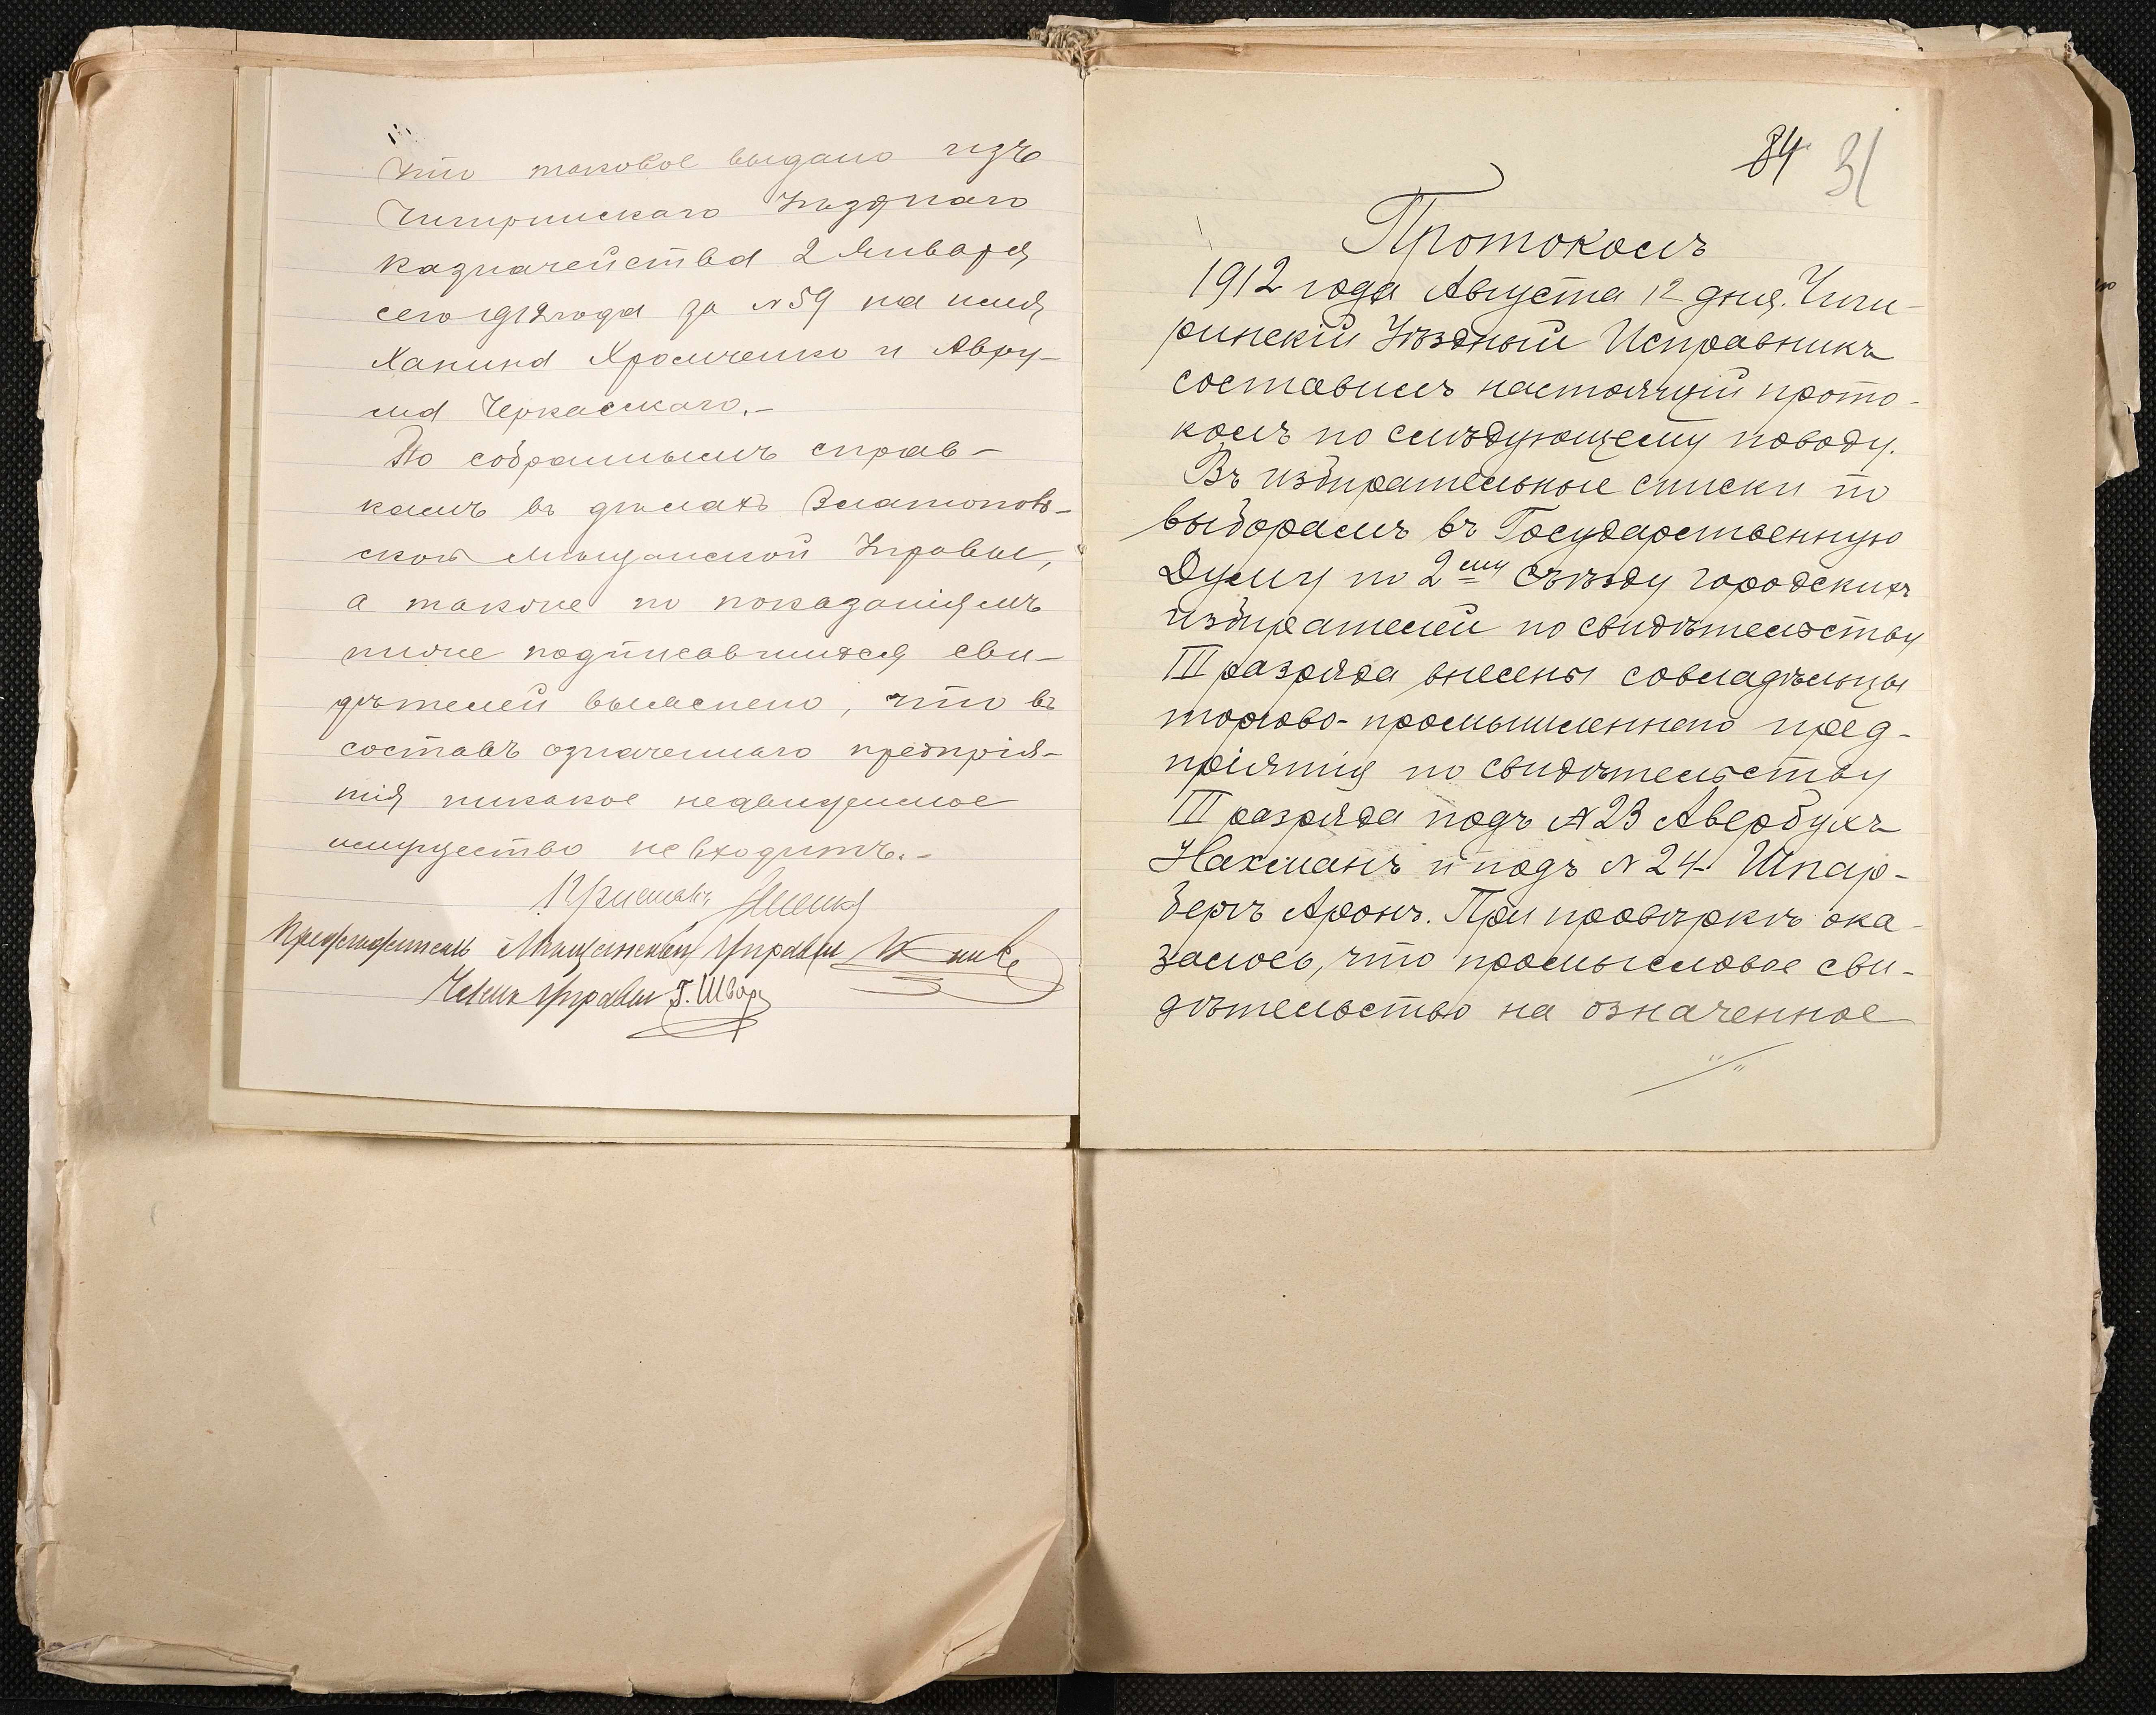 что таковое выдано изъ
Чигиринскаго Уѣзднаго
казначейства 2 Января
сего 1912 года за № 59 на имя
Ханина Хромченко и Авру-
ма Черкасскаго.-
По собраннымъ справ-
камъ въ дѣлахъ Златополь-
ской Мѣщанской Управы,
а также по показаніямъ
ниже подписавшихся сви-
дѣтелей выяснено, что въ
составъ означеннаго предпрія-
тія никакое недвижимое
имущество не входитъ.-
Приставъ
Председатель Мѣщанской Управы
Членъ Управы Г. Шварц
84 31
Протоколъ
1912 года Августа 12 дня. Чиги-
ринскій Уѣздный Исправникъ
составилъ настоящій прото-
колъ по слѣдующему поводу.
Въ избирательные списки по
выборамъ въ Государственную
Думу по 2му съѣзду городскихъ
избирателей по свидѣтельству
III разряда внесены совладѣльцы
торгово-промышленнаго пред-
пріятія по свидѣтельству
III разряда подъ № 23 Авербухъ
Нахманъ и подъ № 24 Шпар-
бергъ Аронъ. При провѣркѣ ока-
залось, что промысловое сви-
дѣтельство на означенное